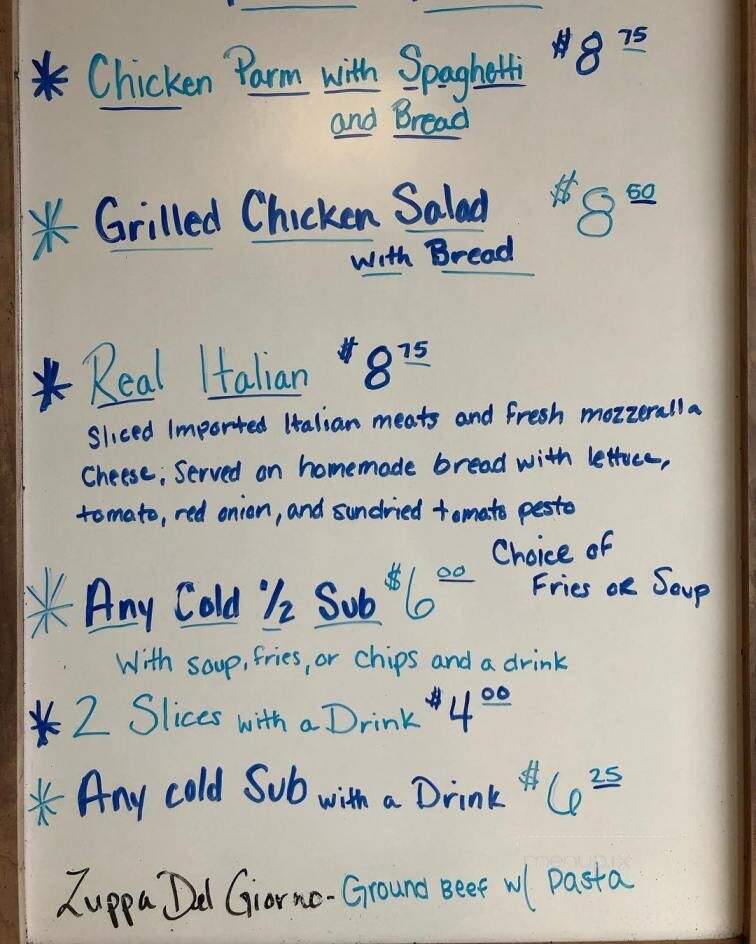 * Chicken Parm with Spaghetti $8 75
and Bread
* Grilled Chicken Salad $8 50
with Bread
* Real Italian $8 75
Sliced Imported Italian meats and fresh mozzeralla
Cheese; Served on homemade bread with lettuce,
tomato, red onion, and sundried tomato pesto
Choice of
Fries or Soup
* Any Cold 1/2 Sub $6 00
With soup, fries, or chips and a drink
* 2 Slices with a Drink $4 00
* Any cold Sub with a Drink $6 25
Zuppa Del Giorno - Ground Beef w/ pasta